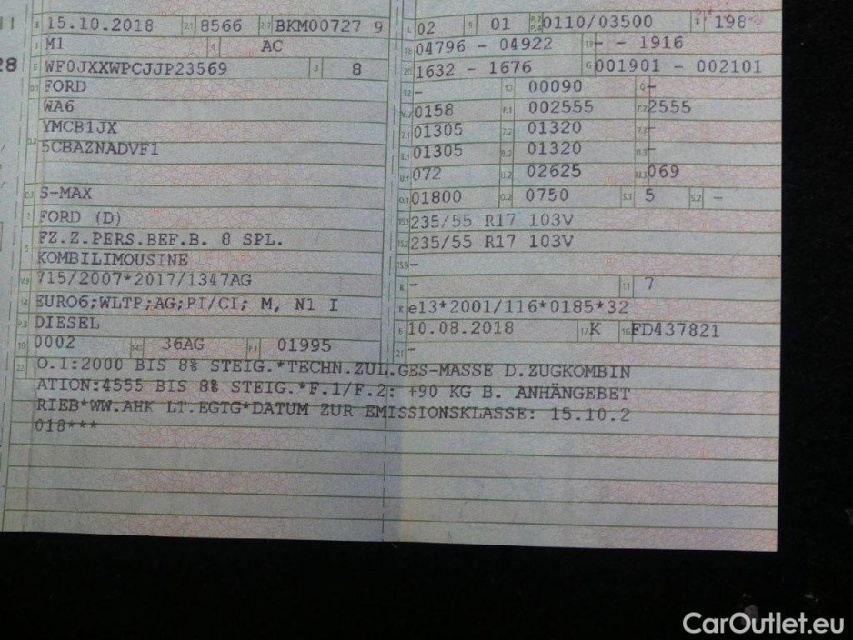 15.10.2018 8566 BKM00727 9
M1 AC
WF0JXXWPCJJP23569 8
FORD
WA6
YMCB1JX
5CBAZNADVF1
S-MAX
FORD (D)
FZ.Z.PERS.BEF.B. 8 SPL.
KOMBILIMOUSINE
715/2007*2017/1347AG
EURO6;WLTP;AG;PI/CI; M, N1 I
DIESEL
0002 36AG 01995
02 01 0110/03500 198
04796 - 04922 - - 1916
1632 - 1676 001901 - 002101
- 00090 -
0158 002555 2555
01305 01320 -
01305 01320 -
072 02625 069
01800 0750 5 -
235/55 R17 103V
235/55 R17 103V
-
- 7
e13*2001/116*0185*32
10.08.2018 K FD437821
-
O.1:2000 BIS 8% STEIG.*TECHN.ZUL.GES-MASSE D.ZUGKOMBIN
ATION:4555 BIS 8% STEIG.*F.1/F.2: +90 KG B. ANHÄNGEBET
RIEB*WW.AHK LT.EGTG*DATUM ZUR EMISSIONSKLASSE: 15.10.2
018***
28
CarOutlet.eu